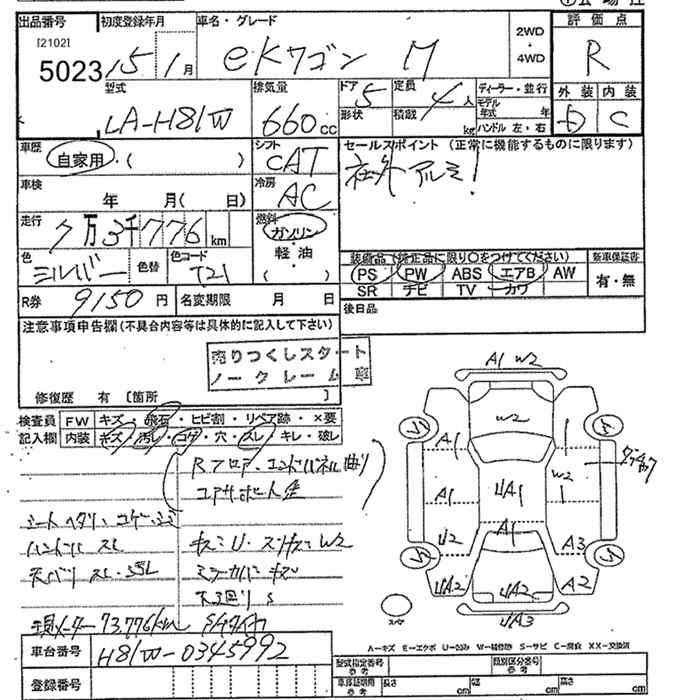 出品番号 初度登録年月 車名・グレード 2WD・4WD 評価点
[2102]
5023 15 1月 eKワゴン M R
型式 排気量 ドア 定員 ディーラー・並行 外装 内装
LA-H81W 660cc 5 4人 モデル年式 年 D C
形状 積載 kg ハンドル 左・右
車歴 自家用・( ) シフト CAT セールスポイント (正常に機能するものに限ります)
社外アルミ!
車検 年 月( 日) 冷房 AC
走行 7万3千776km 燃料 ガソリン
軽油
( )
色 シルバー 色替 色コード T21
装備品(純正品に限り○をつけてください) 新車保証書
PS PW ABS エアB AW 有・無
SR ナビ TV カワ
R券 9150円 名変期限 月 日 後日品
注意事項申告欄(不具合内容等は具体的に記入して下さい)
売りつくしスタート
ノークレーム車
修復歴 有 [箇所 ]
検査員 FW キズ・飛石・ヒビ割・リペア跡・×要
記入欄 内装 キズ・汚レ・コゲ・穴・スレ・キレ・破レ
Rフロア・エンドパネル曲り
コアサポート
ハンドル スレ
キズU・スリキズW2
現メーター 73,776km
車台番号 H81W-0345992
登録番号
A1 W2
W2
A1
W2
A1
UA1
A1
U2
A3
UA2
UA2
A2
UA3
スペア
A-キズ E-エクボ U-凹み W-補修跡 S-サビ C-腐食 XX-交換済
型式指定番号 参考 類別区分番号
車庫証明用 参考 長さ cm 幅 cm 高さ cm